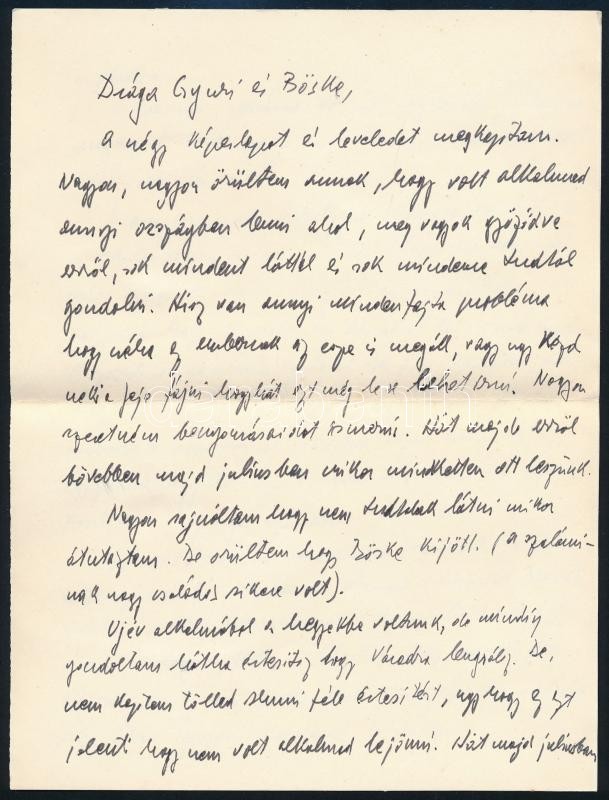 Drága Gyuri és Böske,
a négy képeslapot és leveledet megkaptam.
Nagyon, nagyon örültem annak, hogy volt alkalmad
annyi országban lenni ahol, meg vagyok győződve
erről, sok mindent láttál és sok mindenre tudtál
gondolni. Hisz van annyi mindenfajta probléma
hogy néha az embernek az esze is megáll, vagy úgy kezd
neki a feje fájni hogy hát ezt még le se lehet írni. Nagyon
szeretném benyomásaidat ismerni. Hát majd erről
bővebben majd júliusban mikor mindketten ott leszünk.
Nagyon sajnáltam hogy nem tudtalak látni mikor
átutaztam. De örültem hogy Böske kijött. (a szalámi-
nak nagy családos sikere volt).
Újév alkalmából a hegyekbe voltunk, de mindig
gondoltam hátha értesítesz hogy Váradra lenézel. De,
nem kaptam tőled semmi féle értesítést, úgy hogy ez azt
jelenti hogy nem volt alkalmad lejönni. Hát majd júliusban